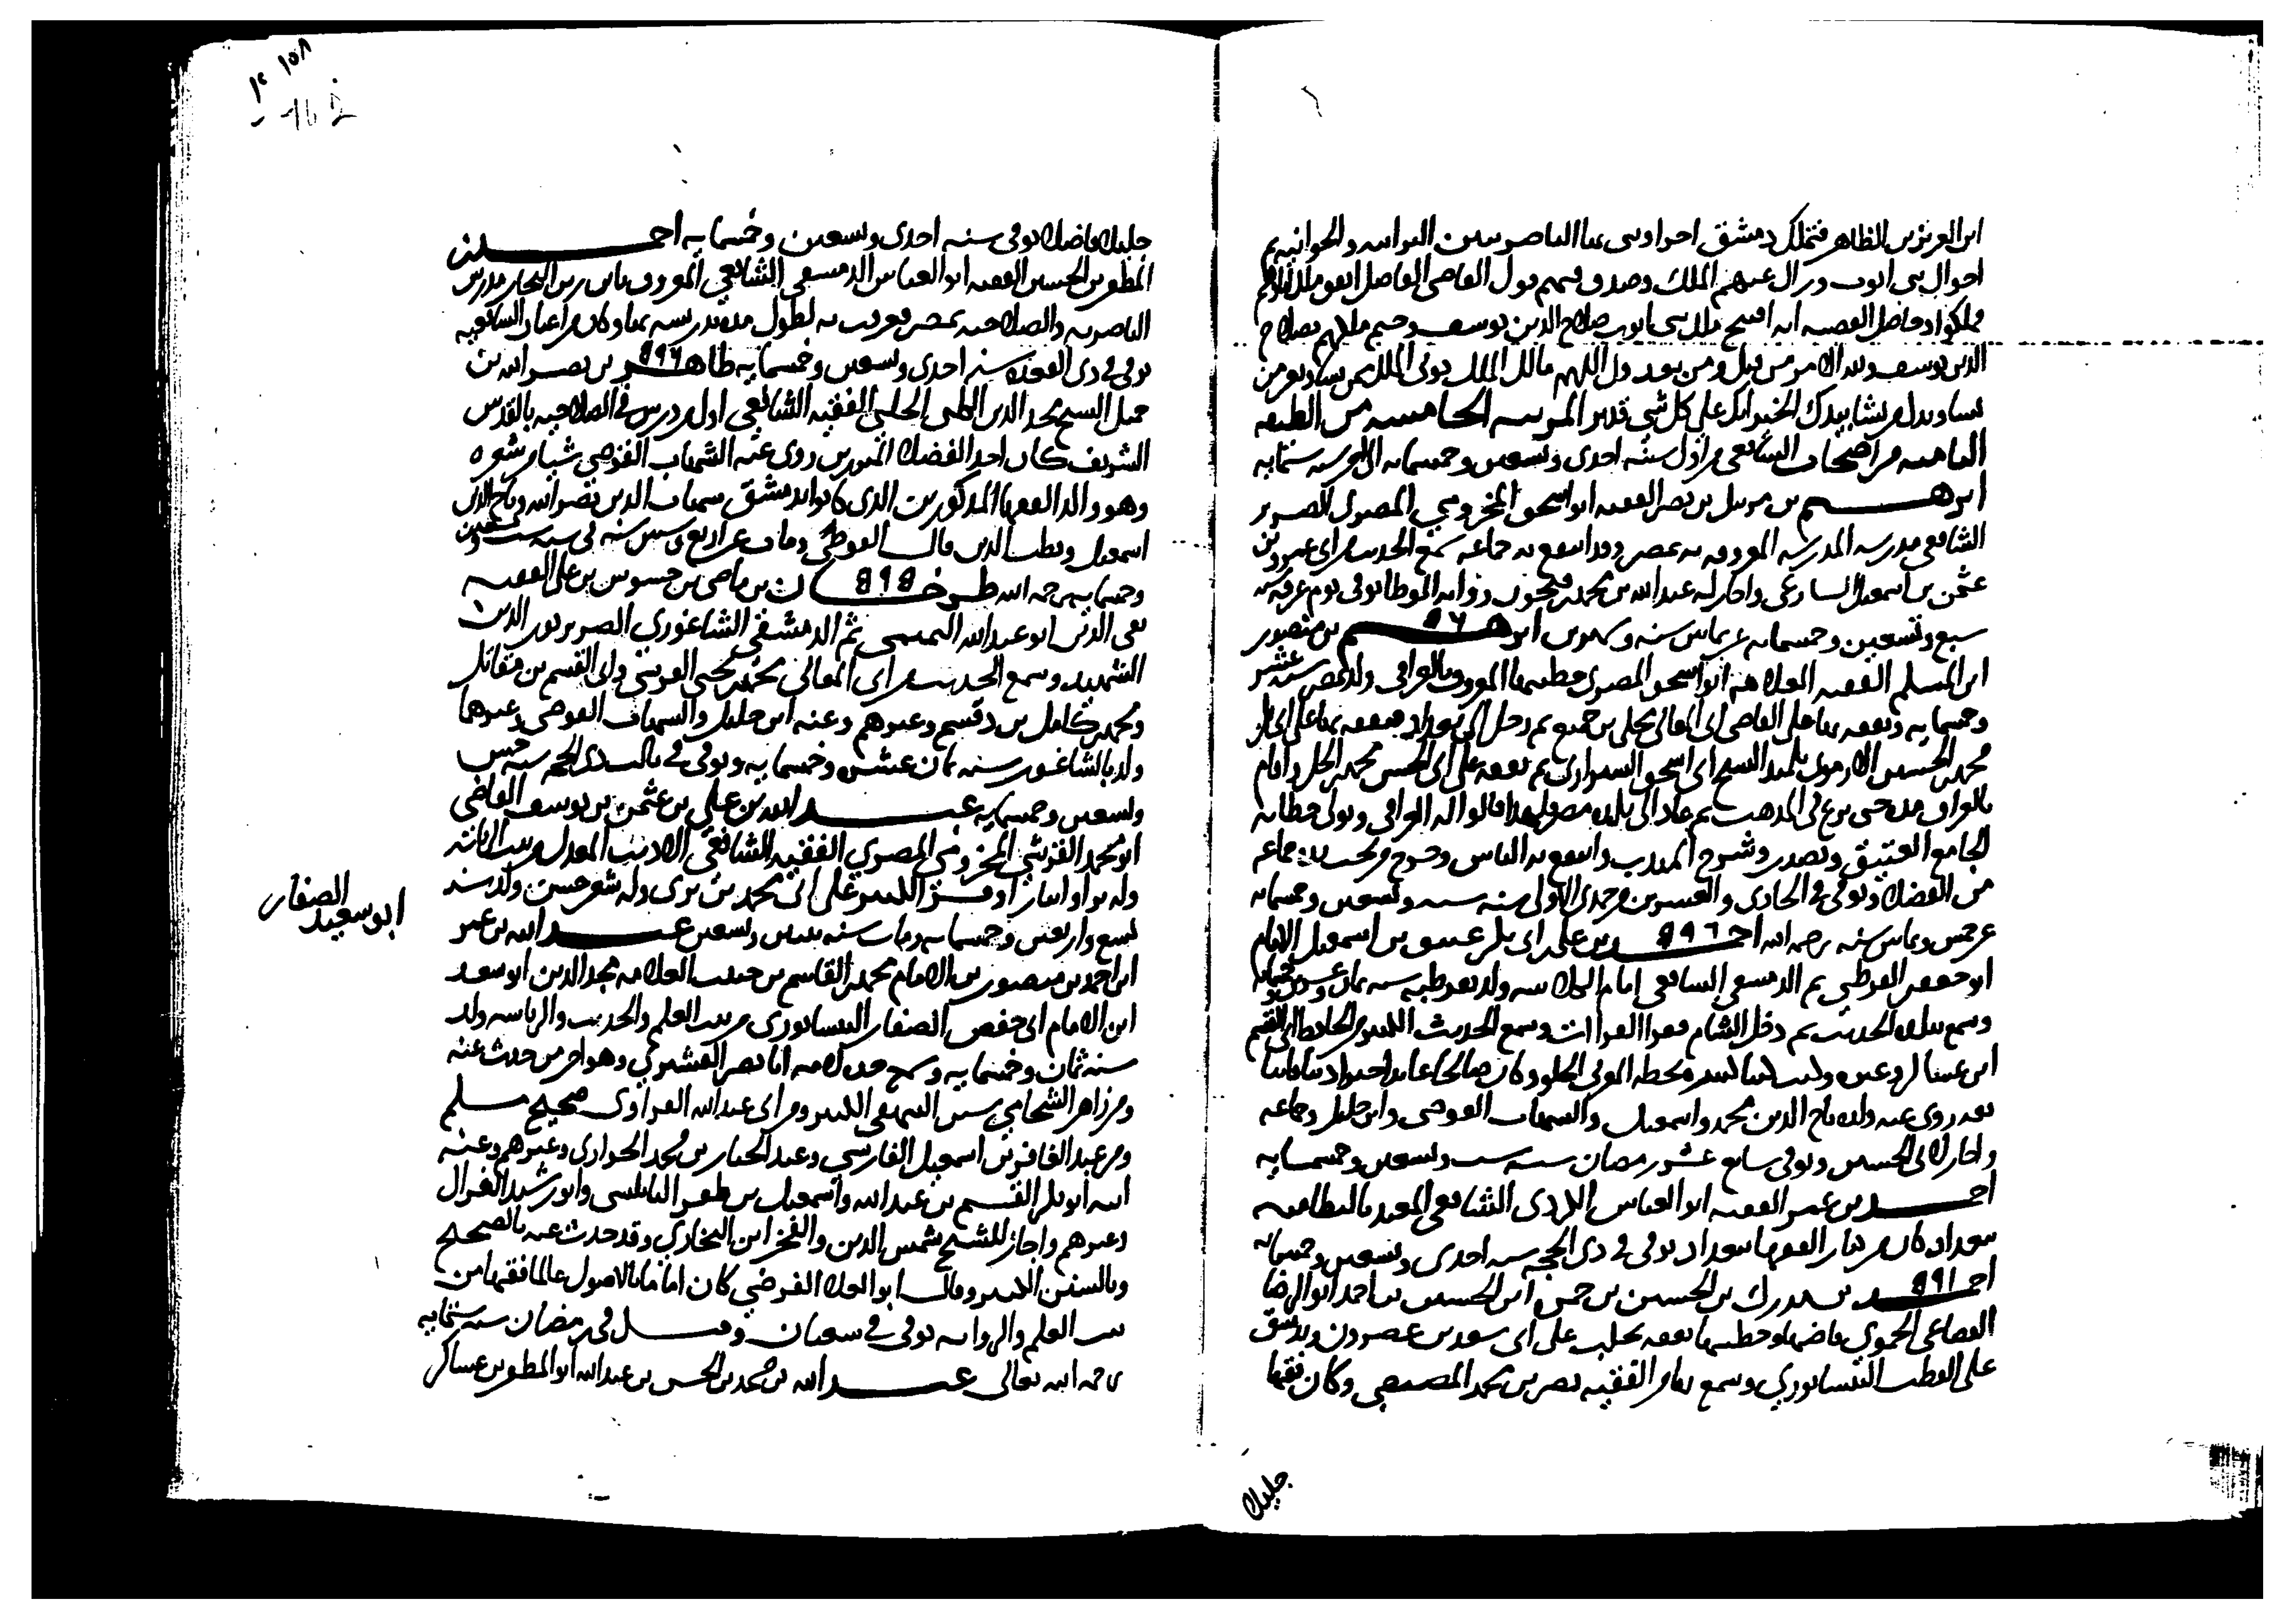 ابن العزيز بن الظاهر فتملك دمشق
احوال بني ايوب وزال عنهم الملك وصدق فيهم قول القاضي الفاضل
صلاح الدين يوسف
الدين يوسف ولله الامر من قبل ومن بعد قل اللهم مالك الملك توتي الملك من تشا وتعز من
تشا وتذل من تشا بيدك الخير انك على كل شي قدير المرتبه الخامسه من الطبقه
الثامنه من اصحاب الشافعي من اول سنه احدى وتسعين وخمسمايه الى اخر سنه ستمايه
ابرهيم بن مزيبل بن نصر الفقيه ابو اسحق المخزومي المصري الضرير
الشافعي مدرس المدرسه المعروفه به بمصر وقد انتفع به جماعه سمع الحديث من ابي عمرو بن
عثمن بن اسمعيل الشارعي واجاز له عبد الله بن محمد بن فتحون رواية الموطا توفي يوم عرفه سنه
سبع وتسعين وخمسمايه عن ثمانين سنه ابرهيم بن منصور ٥٩٦
ابن المسلم الفقيه العلامه ابو اسحق المصري خطيبها المعروف بالعراقي ولد بمصر سنه عشر
وخمسمايه وتفقه بها على القاضي ابي المعالي مجلي بن جميع ثم رحل الى بغداد فتفقه بها على ابي بكر
محمد بن الحسين الارموي تلميذ الشيخ ابي اسحق الشيرازي ثم تفقه على ابي الحسن محمد بن الخل واقام
بالعراق مده حتى برع في المذهب ثم عاد الى بلده مصر فلهذا قالوا له العراقي وتولى خطابه
الجامع العتيق وتصدر وشرح المهذب وانتفع به الناس وخرج من تحت يده جماعه
من الفضلا وتوفي في الحادي والعشرين من جمدى الاولى سنه ست وتسعين وخمسمايه
عن خمس وثمانين سنه رحمه الله احمد بن علي بن ابي بكر عتيق بن اسمعيل الامام ٥٩٦
ابو جعفر القرطبي ثم الدمشقي الشافعي امام الكلاسه ولد بقرطبه سنه ثمان وعشرين وخمسمايه
وسمع ببلده الحديث ثم دخل الشام فقرا القراات وسمع الحديث الكثير من الحافظ ابي القسم
ابن عساكر وغيره وكتب كتبا كثيره بخطه وكان صالحا عابدا
ثقه روى عنه ولده تاج الدين محمد واسمعيل والشهاب القوصي وابن خليل وجماعه
وتوفي سابع عشر رمضان سنه ست وتسعين وخمسمايه
احمد بن الفقيه ابو العباس الكردي الشافعي المعيد بالنظاميه
ببغداد كان من كبار الفقها ببغداد توفي في ذي الحجه سنه احدى وتسعين وخمسمايه
احمد بن مدرك بن الحسين بن حمزه ابن الحسين بن احمد ابو الرضا ٥٩١
القضاعي الحموي قاضيها وخطيبها تفقه بحلب على ابي سعد بن عصرون وبدمشق
على القطب النيسابوري وسمع بها من الفقيه نصر بن محمد المصيصي وكان فقيها
جليلا
جليلا فاضلا توفي سنه احدى وتسعين وخمسمايه احمد بن
المظفر بن الحسين الفقيه ابو العباس الدمشقي الشافعي المعروف بابن زين التجار مدرس
الناصريه والصلاحيه بمصر فعرفت به لطول مده تدريسه بها وكان من اعيان الشافعيه
توفي في ذي القعده سنه احدى وتسعين وخمسمايه طاهر بن نصر الله بن ٥٩٦
جهبل الشيخ مجد الدين الكلابي الحلبي الفقيه الشافعي اول من درس في الصلاحيه بالقدس
الشريف كان احد الفضلا المشهورين روى عنه الشهاب القوصي شيا من شعره
وهو والد الفقها المذكورين الذي كانوا بدمشق شهاب الدين نصر الله وتاج الدين
اسمعيل وقطب الدين قال القوصي ومات عن اربع وستين سنه في سنه ست وتسعين
وخمسمايه رحمه الله طرخان بن ماضي بن جوشن بن علي الفقيه ٥٩٥
تقي الدين ابو عبد الله اليمني ثم الدمشقي الشاغوري الضرير نور الدين
الشهيد وسمع الحديث من ابي المعالي محمد بن يحيى القرشي وابي القسم بن مقاتل
ومحمد بن كامل بن ديسم وغيرهم وعنه ابن خليل والشهاب القوصي وغيرهما
ولد بالشاغور سنه ثمان عشره وخمسمايه وتوفي في ثالث ذي الحجه سنه خمس
وتسعين وخمسمايه عبد الله بن علي بن عثمن بن يوسف القاضي
ابو محمد القرشي المخزومي المصري الفقيه الشافعي الاديب المعدل
على ابي محمد بن بري وله شعر حسن ولد سنه
تسع واربعين وخمسمايه ومات سنه ثنتين وتسعين عبد الله بن عمر
ابن احمد بن منصور بن الامام محمد بن القاسم بن حبيب العلامه مجد الدين ابو سعد
ابن الامام ابي حفص الصفار النيسابوري من بيت العلم والحديث والرياسه ولد
سنه ثمان وخمسمايه وسمع جده لامه ابا نصر القشيري وهو اخر من حدث عنه
ومن زاهر الشحامي سنن البيهقي الكبير ومن ابي عبد الله الفراوي صحيح مسلم
ومن عبد الغافر بن اسمعيل الفارسي وعبد الجبار بن محمد الخواري وغيرهم وعنه
ابنه ابو بكر القسم بن عبد الله واسمعيل بن ظفر النابلسي وابو رشيد الغزال
وغيرهم واجاز للشيخ شمس الدين والفخر ابن البخاري وقد حدث عنه بالصحيح
وبالسنن الكبير وقال ابو العلا الفرضي كان اماما بالاصول عالما فقيها من
بيت العلم والروايه توفي في شعبان وقيل في رمضان سنه ستمايه
رحمه الله تعالى عبد الله بن محمد بن الحسن بن عبد الله ابو المظفر بن عساكر
ابو سعيد الصفار
١٥٨